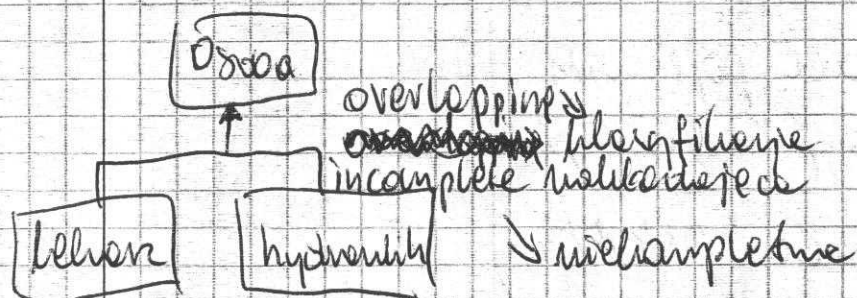 Osoba
overlapping ↘ klasyfikacja
incomplete nakładająca
lekarz hydraulik ↘ niekompletna